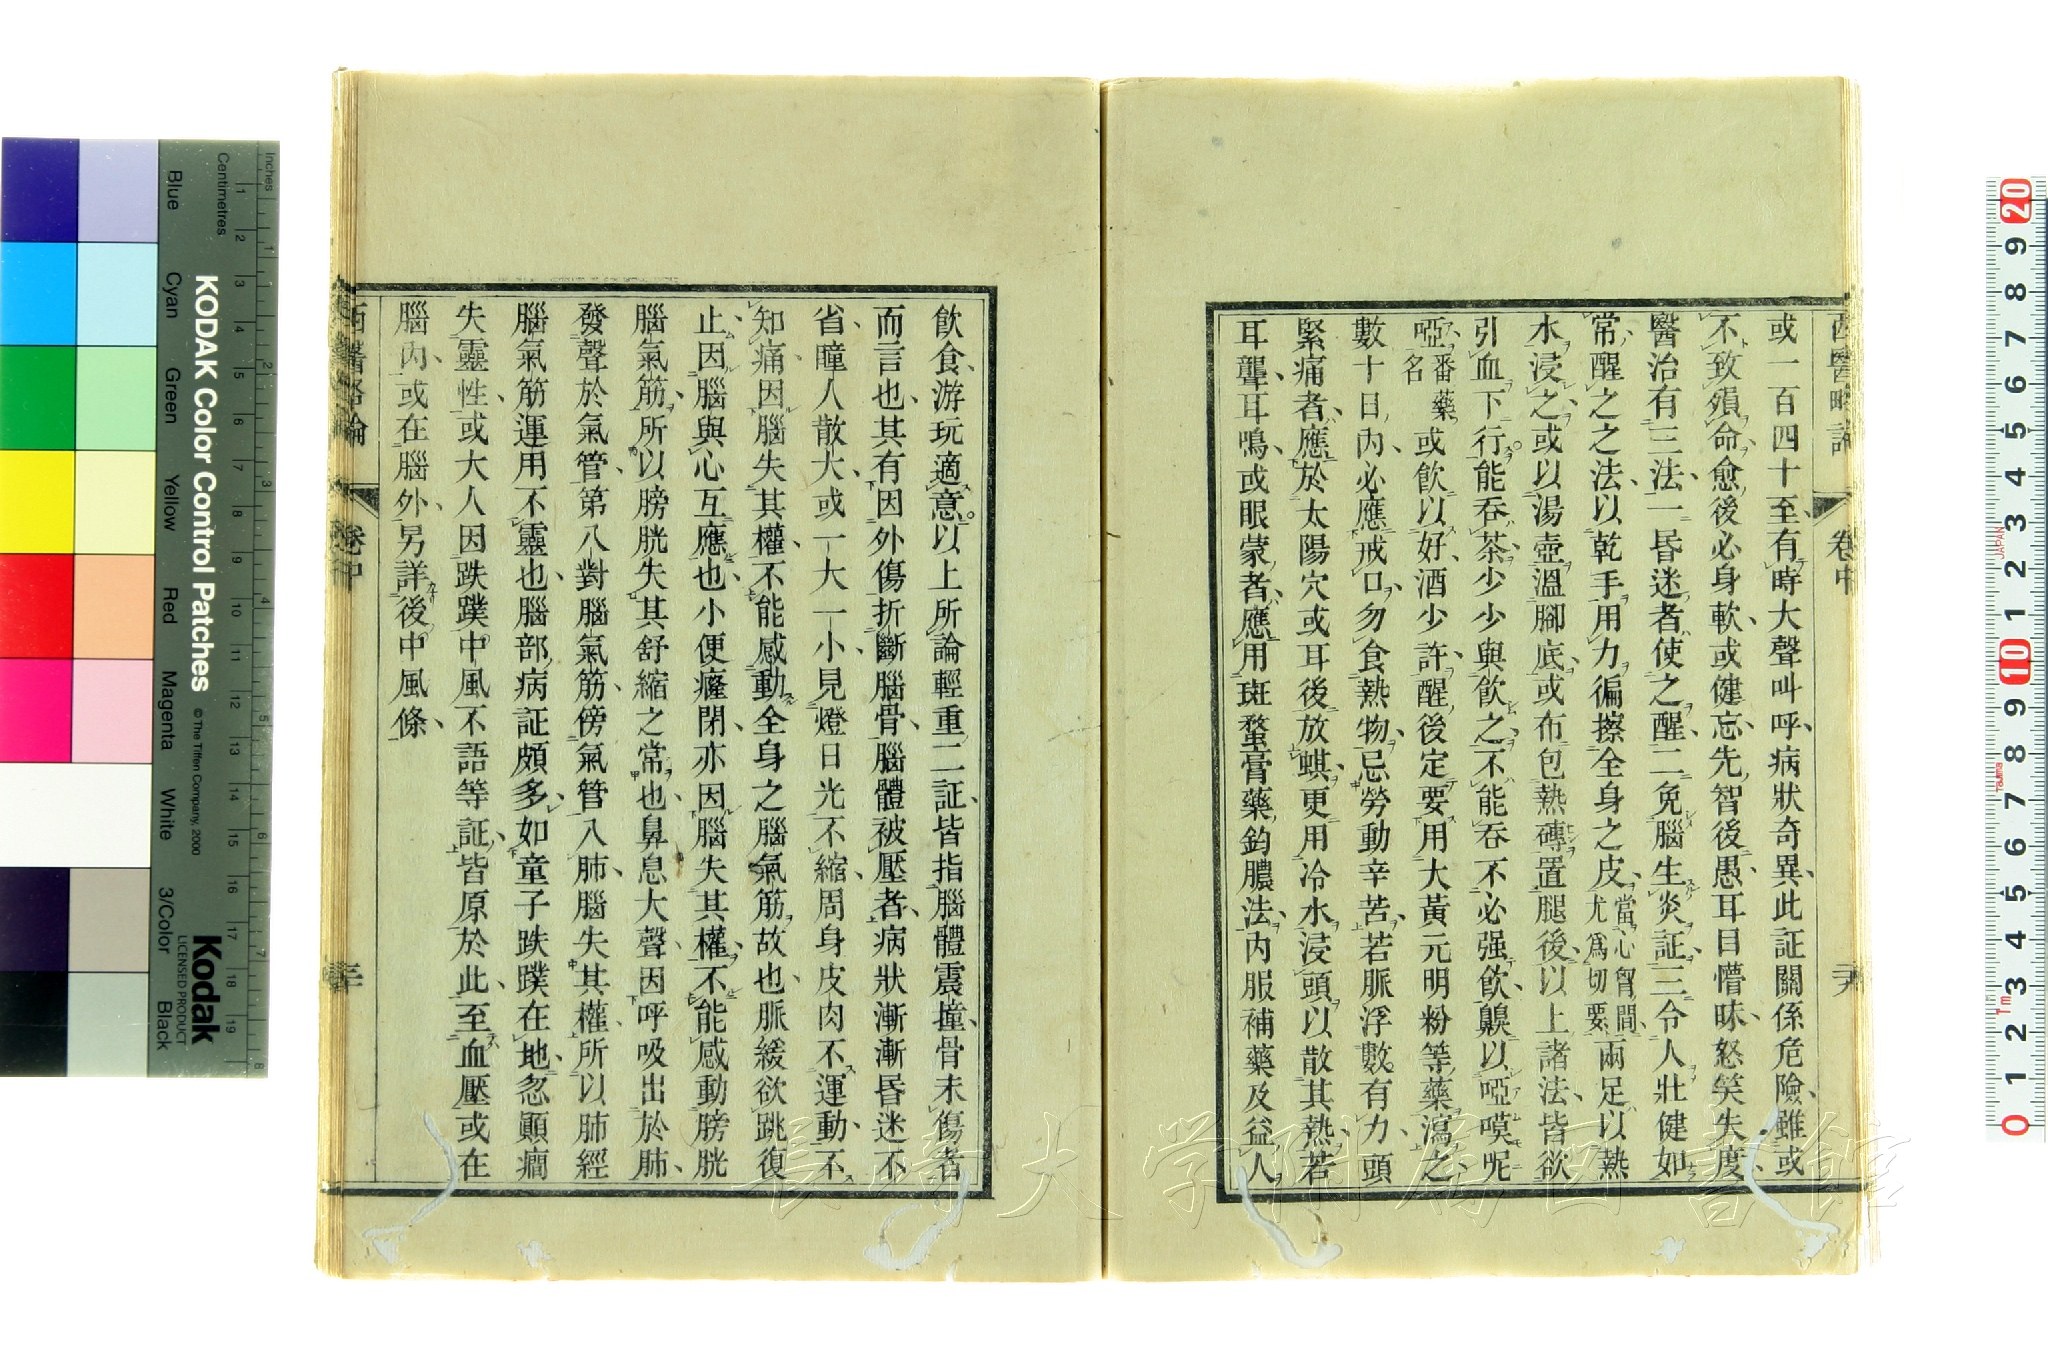 西醫略論 卷中 二十九
或一百四十至有時大聲叫呼病狀奇異此証關係危險雖或
不致殞命愈後必身軟或健忘先智後愚耳目懵昧怒笑失度
醫治有三法一昏迷者使之醒二免腦生炎証三令人壯健如
常醒之之法以乾手用力徧擦全身之皮當心胷間尤爲切要兩足以熱
水浸之或以湯壺溫腳底或布包熱磚置腿後以上諸法皆欲
引血下行能吞茶少少與飲之不能吞不必强飲齅以啞嘆呢
啞番藥名或飲以好酒少許醒後定要用大黃元明粉等藥瀉之
數十日內必應戒口勿食熱物忌勞動辛苦若脈浮數有力頭
緊痛者應於太陽穴或耳後放蜞更用冷水浸頭以散其熱若
耳聾耳鳴或眼蒙者應用斑蝥膏藥鈞膿法內服補藥及益人
飲食游玩適意以上所論輕重二証皆指腦體震撞骨未傷者
而言也其有因外傷折斷腦骨腦體被壓者病狀漸漸昏迷不
省瞳人散大或一大一小見燈日光不縮周身皮肉不運動不
知痛因腦失其權不能感動全身之腦氣筋故也脈緩欲跳復
止因腦與心互應也小便癃閉亦因腦失其權不能感動膀胱
腦氣筋所以膀胱失其舒縮之常也鼻息大聲因呼吸出於肺
發聲於氣管第八對腦氣筋傍氣管入肺腦失其權所以肺經
腦氣筋運用不靈也腦部病証頗多如童子跌蹼在地忽顚癎
失靈性或大人因跌蹼中風不語等証皆原於此至血壓或在
腦內或在腦外另詳後中風條
西醫略論 卷中 三十
KODAK Color Control Patches
© The Tiffen Company, 2000
Kodak
LICENSED PRODUCT
Blue Cyan Green Yellow Red Magenta White 3/Color Black
Inches
Centimetres
長崎大学附属図書館